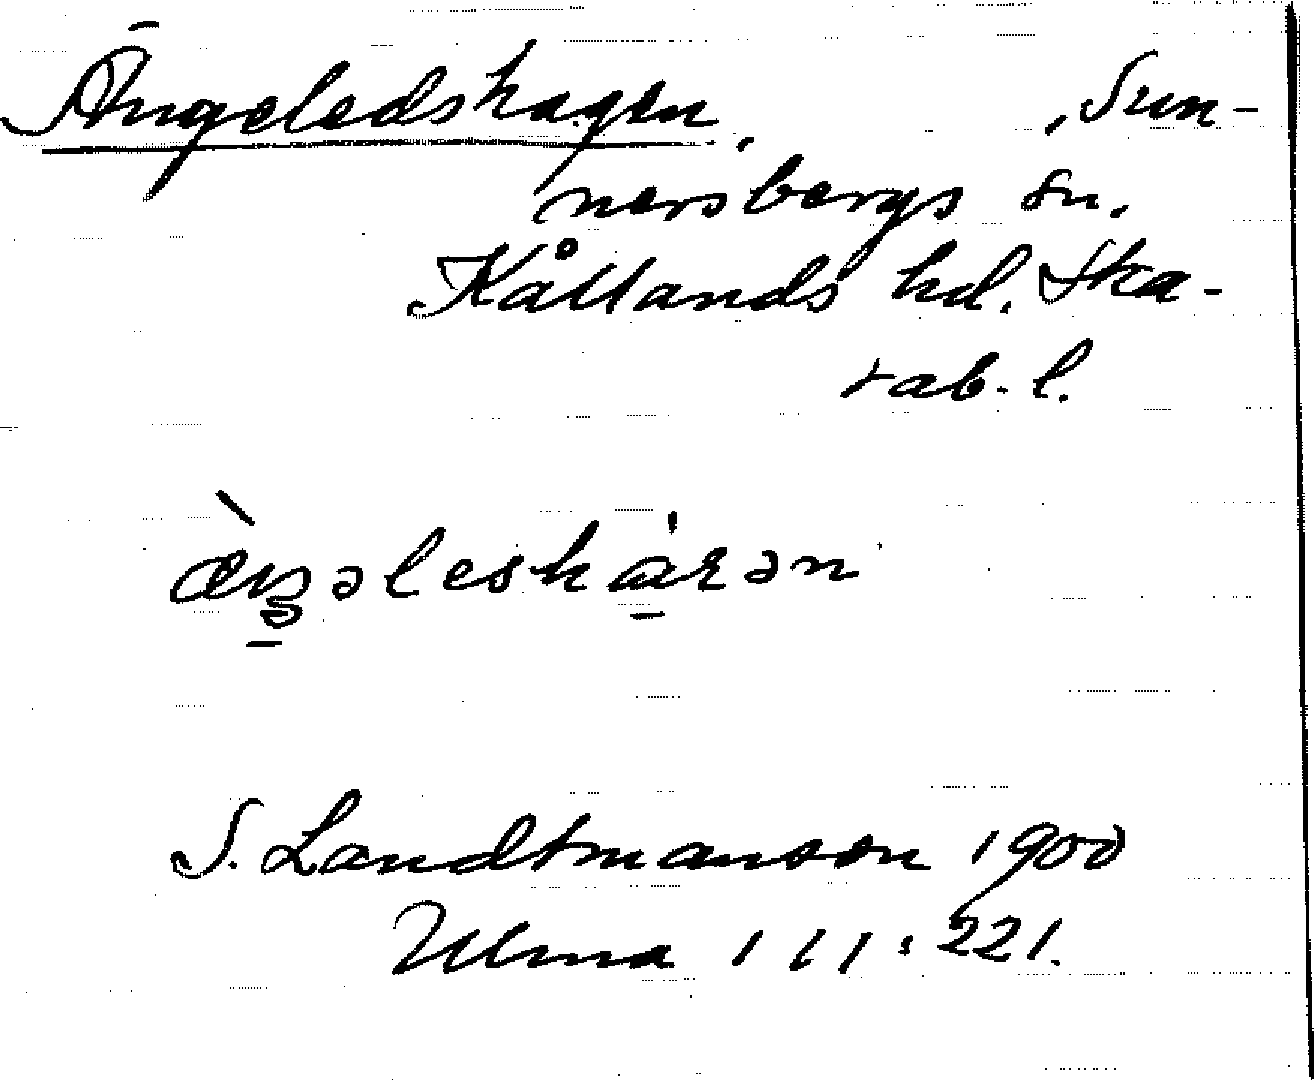 Ängeledshagen, Sun-
nersbergs sn.
Kållands hd. Ska-
rab. l.
S. Landtmanson 1900
Ulma 111:221.